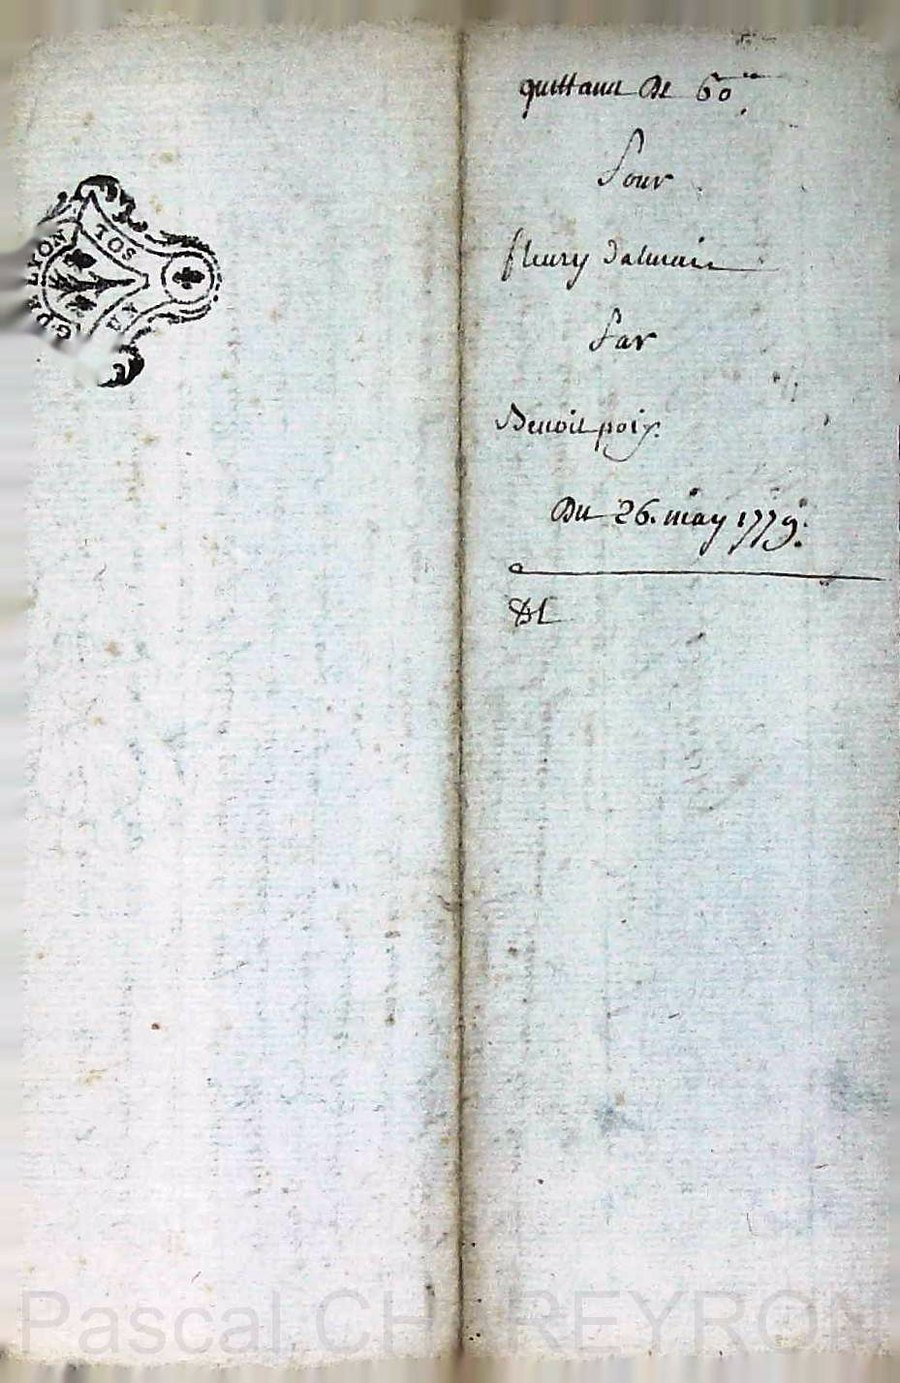 G DE LYON
TOS
quittance De 60ᵗᵗ
Pour
fleury Dalmais
Par
Benoit poix.
Du 26. may 1779.
Pascal CHAREYRON